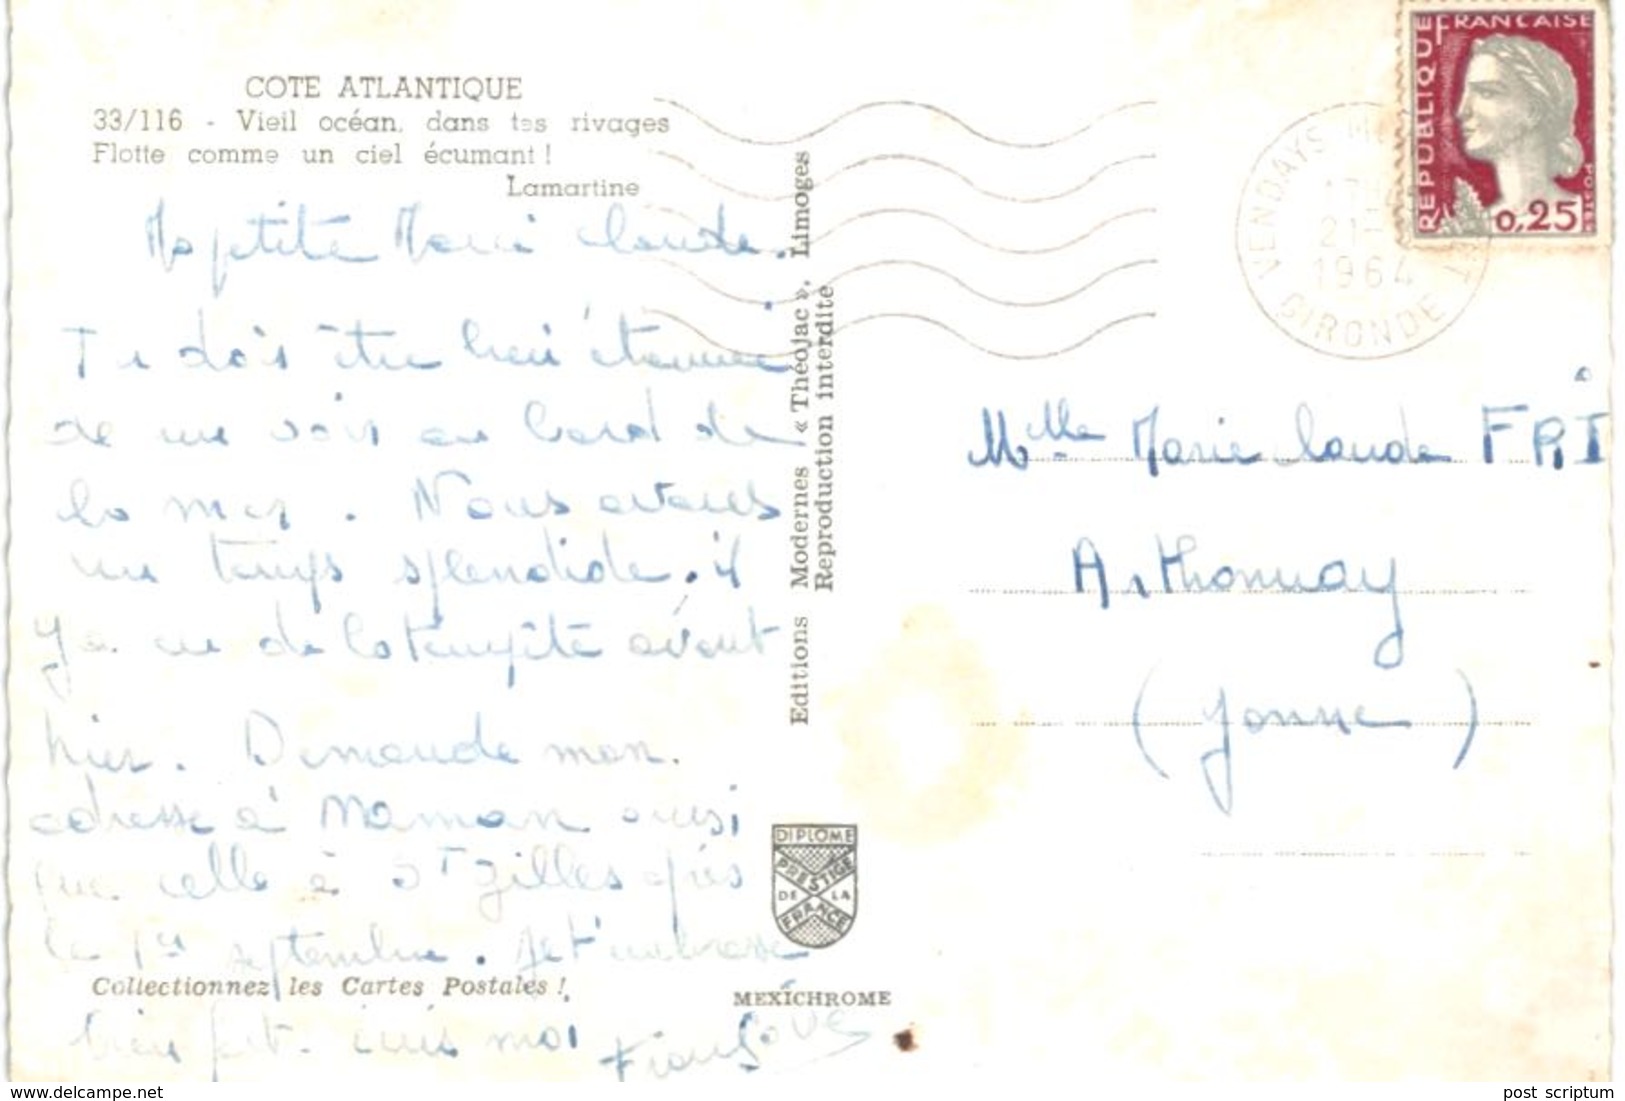 COTE ATLANTIQUE
33/116 - Vieil océan, dans tes rivages
Flotte comme un ciel écumant !
Lamartine
Ma petite Marie Claude.
Tu dois être bien étonnée
de me voir au bord de
la mer. Nous avons
un temps splendide. il
y a eu de la tempête avant
hier. Demande mon
adresse à Maman aussi
que celle à St Gilles après
le 1er septembre. Je t'embrasse
bien fort. écris moi
Editions Modernes « Théojac », Limoges
Reproduction interdite
Collectionnez les Cartes Postales !
DIPLOME
PRESTIGE
DE LA
FRANCE
MEXICHROME
REPUBLIQUE FRANCAISE
POSTES
0,25
VENDAYS
21
1964
GIRONDE
Mlle Marie Claude
Arthonnay
(Yonne)
delcampe.net
post_scriptum